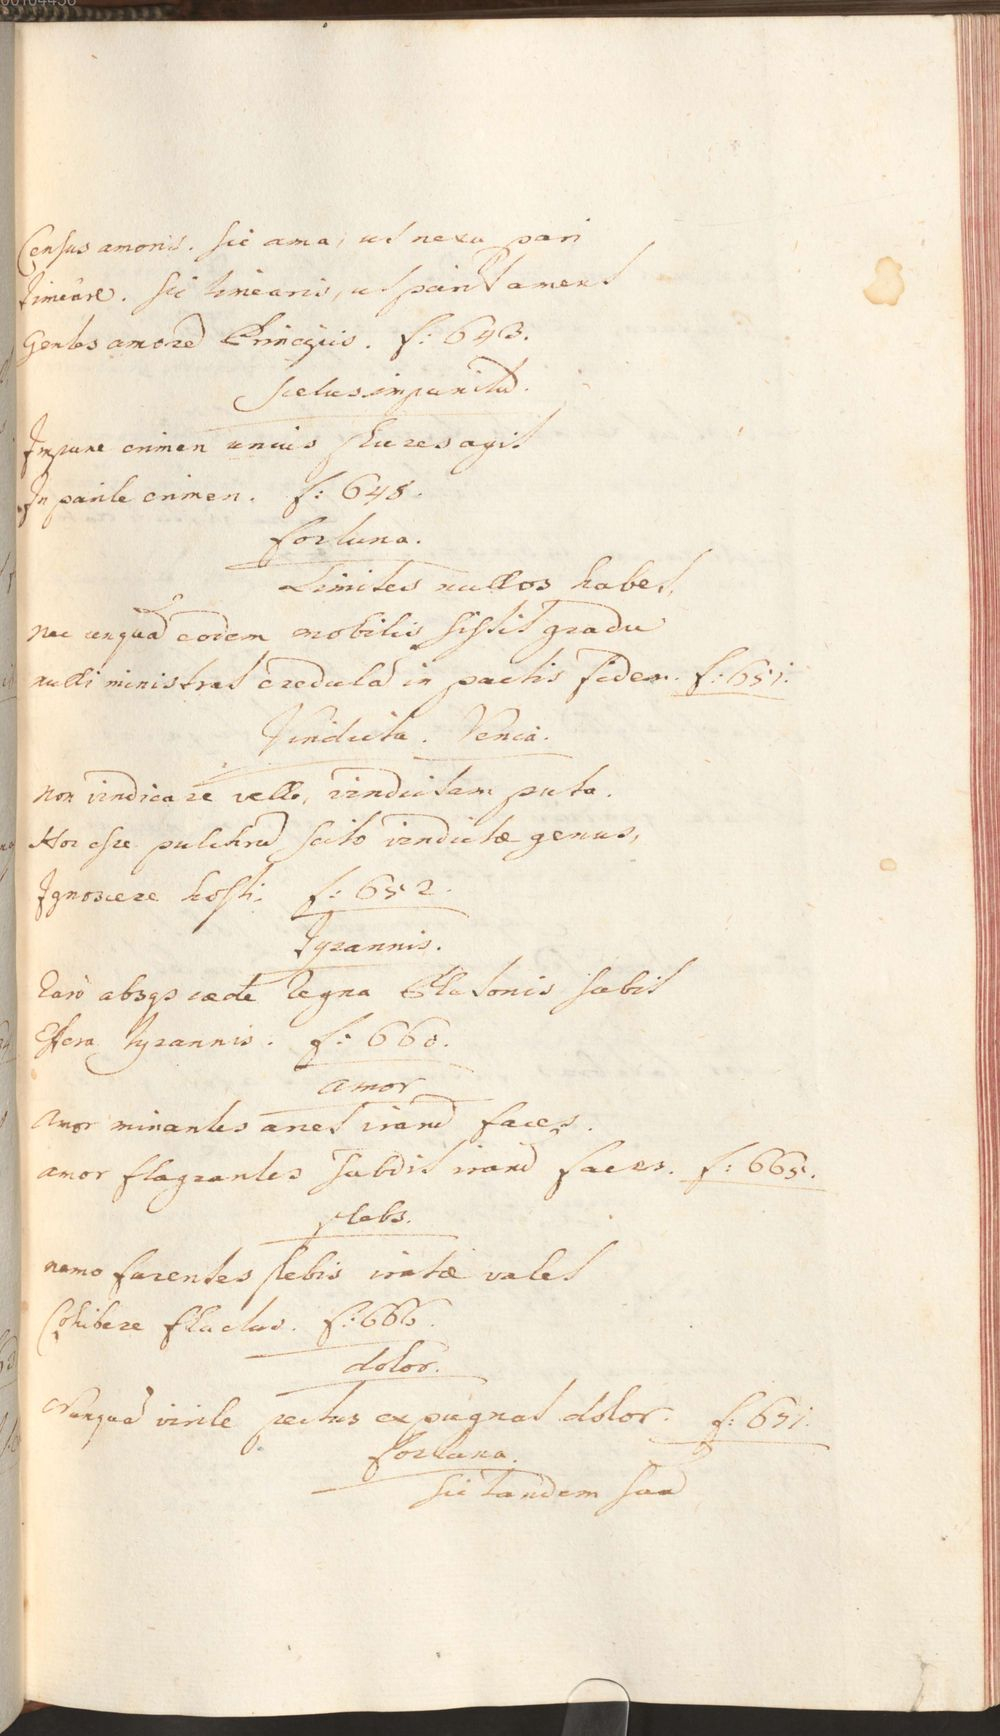 Census amoris. Sic ama, ut nexu pari
Timeare. Sic timearis, ut pariter ament
Gentes amorē Principis. f: 643.
Scelus impunitū.
Impune crimen unius plures agit
In parile crimen. f: 648.
fortuna.
Limites nullos habet,
nec unquā eodem mobilis sistit gradu
nulli ministrat credulā in pactis fidem. f: 651.
Vindicta. Venia.
Non vindicare velle, vindictam puta.
Hoc esse pulchrū scito vindictæ genus,
Ignoscere hosti. f: 652.
Tyrannis.
Raro absqs cæde regna Platonis subit
Effera Tyrannis. f: 660.
amor
Amor minantes arcet irarū faces.
amor flagrantes subdit irarū faces. f: 665.
plebs.
nemo furentes plebis iratæ valet
Cohibere fluctus. f: 666.
dolor.
Nunquā virile pectus expugnat dolor. f: 651.
fortuna.
Sic tandem suā